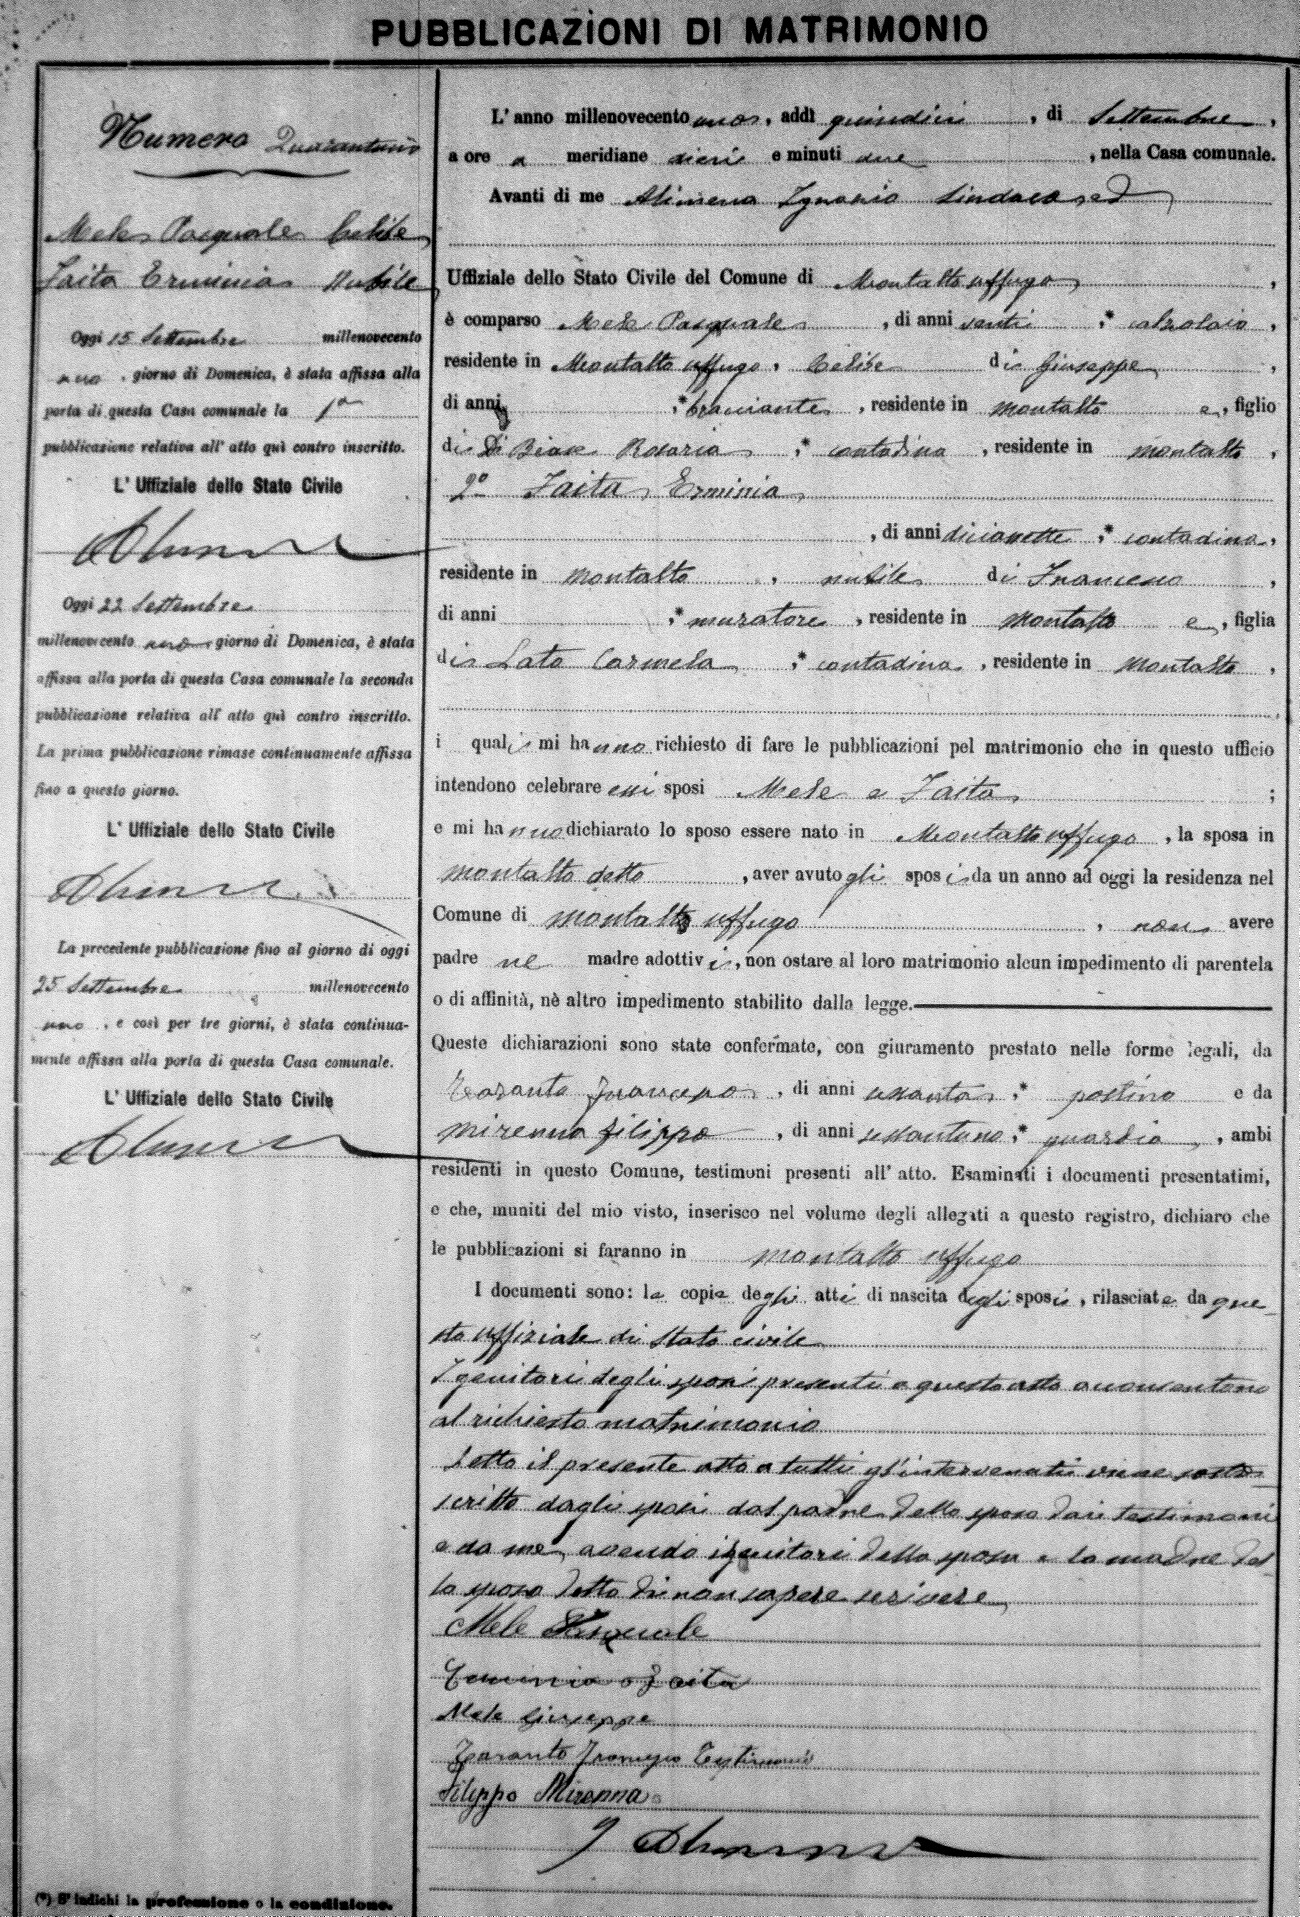 PUBBLICAZIONI DI MATRIMONIO
Numero Quarantuno
Mele Pasquale Celibe
Faita Erminia Nubile
Oggi 15 Settembre millenovecento
uno, giorno di Domenica, è stata affissa alla
porta di questa Casa comunale la 1a
pubblicazione relativa all' atto quì contro inscritto.
L' Uffiziale dello Stato Civile
Oggi 22 Settembre
millenovecento uno giorno di Domenica, è stata
affissa alla porta di questa Casa comunale la seconda
pubblicazione relativa all' atto quì contro inscritto.
La prima pubblicazione rimase continuamente affissa
fino a questo giorno.
L' Uffiziale dello Stato Civile
La precedente pubblicazione fino al giorno di oggi
25 Settembre millenovecento
uno, e così per tre giorni, è stata continua-
mente affissa alla porta di questa Casa comunale.
L' Uffiziale dello Stato Civile
(*) S' indichi la professione o la condizione.
L' anno millenovecento uno, addì quindici, di Settembre,
a ore a meridiane dieci e minuti due, nella Casa comunale.
Avanti di me Alimena Ignazio Sindaco ed
Uffiziale dello Stato Civile del Comune di Montalto uffugo,
è comparso Mele Pasquale, di anni venti, * calzolaio,
residente in Montalto uffugo, Celibe di Giuseppe,
di anni , * bracciante, residente in Montalto e, figlio
di Di Biase Rosaria, * contadina, residente in Montalto,
2º Faita Erminia
, di anni diciasette, * contadina,
residente in Montalto, nubile di Francesco,
di anni , * muratore, residente in Montalto e, figlia
di Lato Carmela, * contadina, residente in Montalto,
i quali mi hanno richiesto di fare le pubblicazioni pel matrimonio che in questo ufficio
intendono celebrare essi sposi Mele e Faita ;
e mi hanno dichiarato lo sposo essere nato in Montalto uffugo, la sposa in
Montalto detto, aver avuto gli sposi da un anno ad oggi la residenza nel
Comune di Montalto uffugo, non avere
padre ne madre adottivi, non ostare al loro matrimonio alcun impedimento di parentela
o di affinità, nè altro impedimento stabilito dalla legge.
Queste dichiarazioni sono state confermate, con giuramento prestato nelle forme legali, da
Taranto Francesco, di anni sessanta, * postino e da
Mirenna Filippo, di anni sessantuno, * guardia, ambi
residenti in questo Comune, testimoni presenti all' atto. Esaminati i documenti presentatimi,
e che, muniti del mio visto, inserisco nel volume degli allegati a questo registro, dichiaro che
le pubblicazioni si faranno in Montalto uffugo
I documenti sono: le copie degli atti di nascita degli sposi, rilasciate da que
sto uffiziale di Stato civile
I genitori degli sposi presenti a questo atto acconsentono
al richiesto matrimonio
Letto il presente atto a tutti gl'intervenuti viene sotto
scritto dagli sposi dal padre dello sposo dai testimoni
e da me, avendo i genitori della sposa e la madre del
lo sposo detto di non sapere scrivere
Mele Pasquale
Erminia Faita
Mele Giuseppe
Taranto Francesco Testimonio
Filippo Mirenna